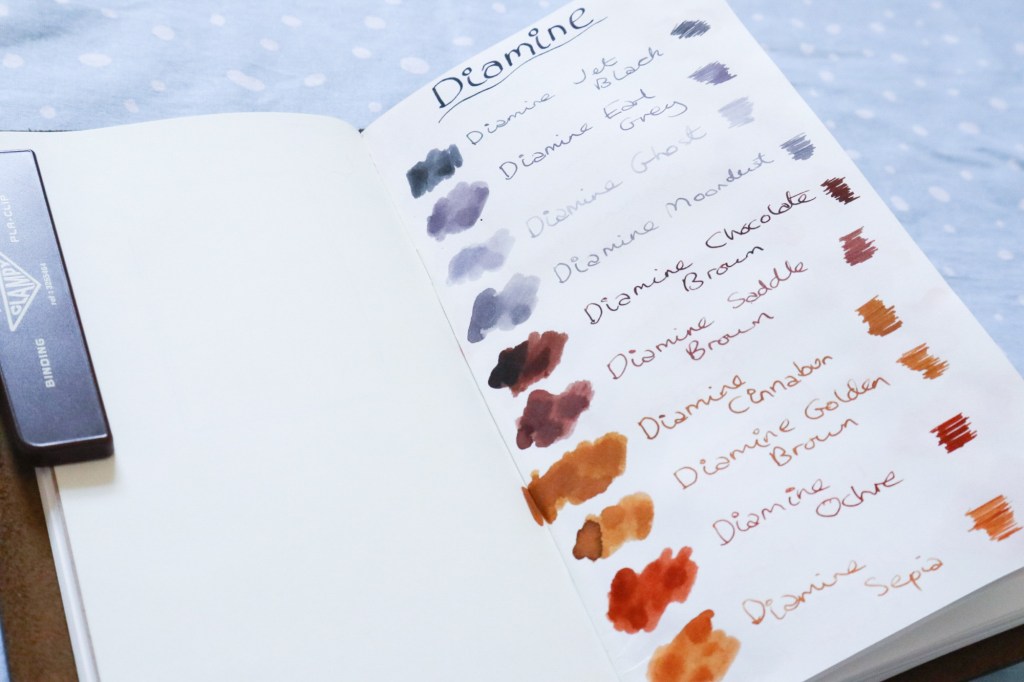 Diamine
Diamine Jet
Black
Diamine Earl
Grey
Diamine Ghost
Diamine Moondust
Diamine Chocolate
Brown
Diamine Saddle
Brown
Diamine
Cinnabun
Diamine Golden
Brown
Diamine
Ochre
Diamine
Sepia
CLAMPY
BINDING
PLA-CLIP